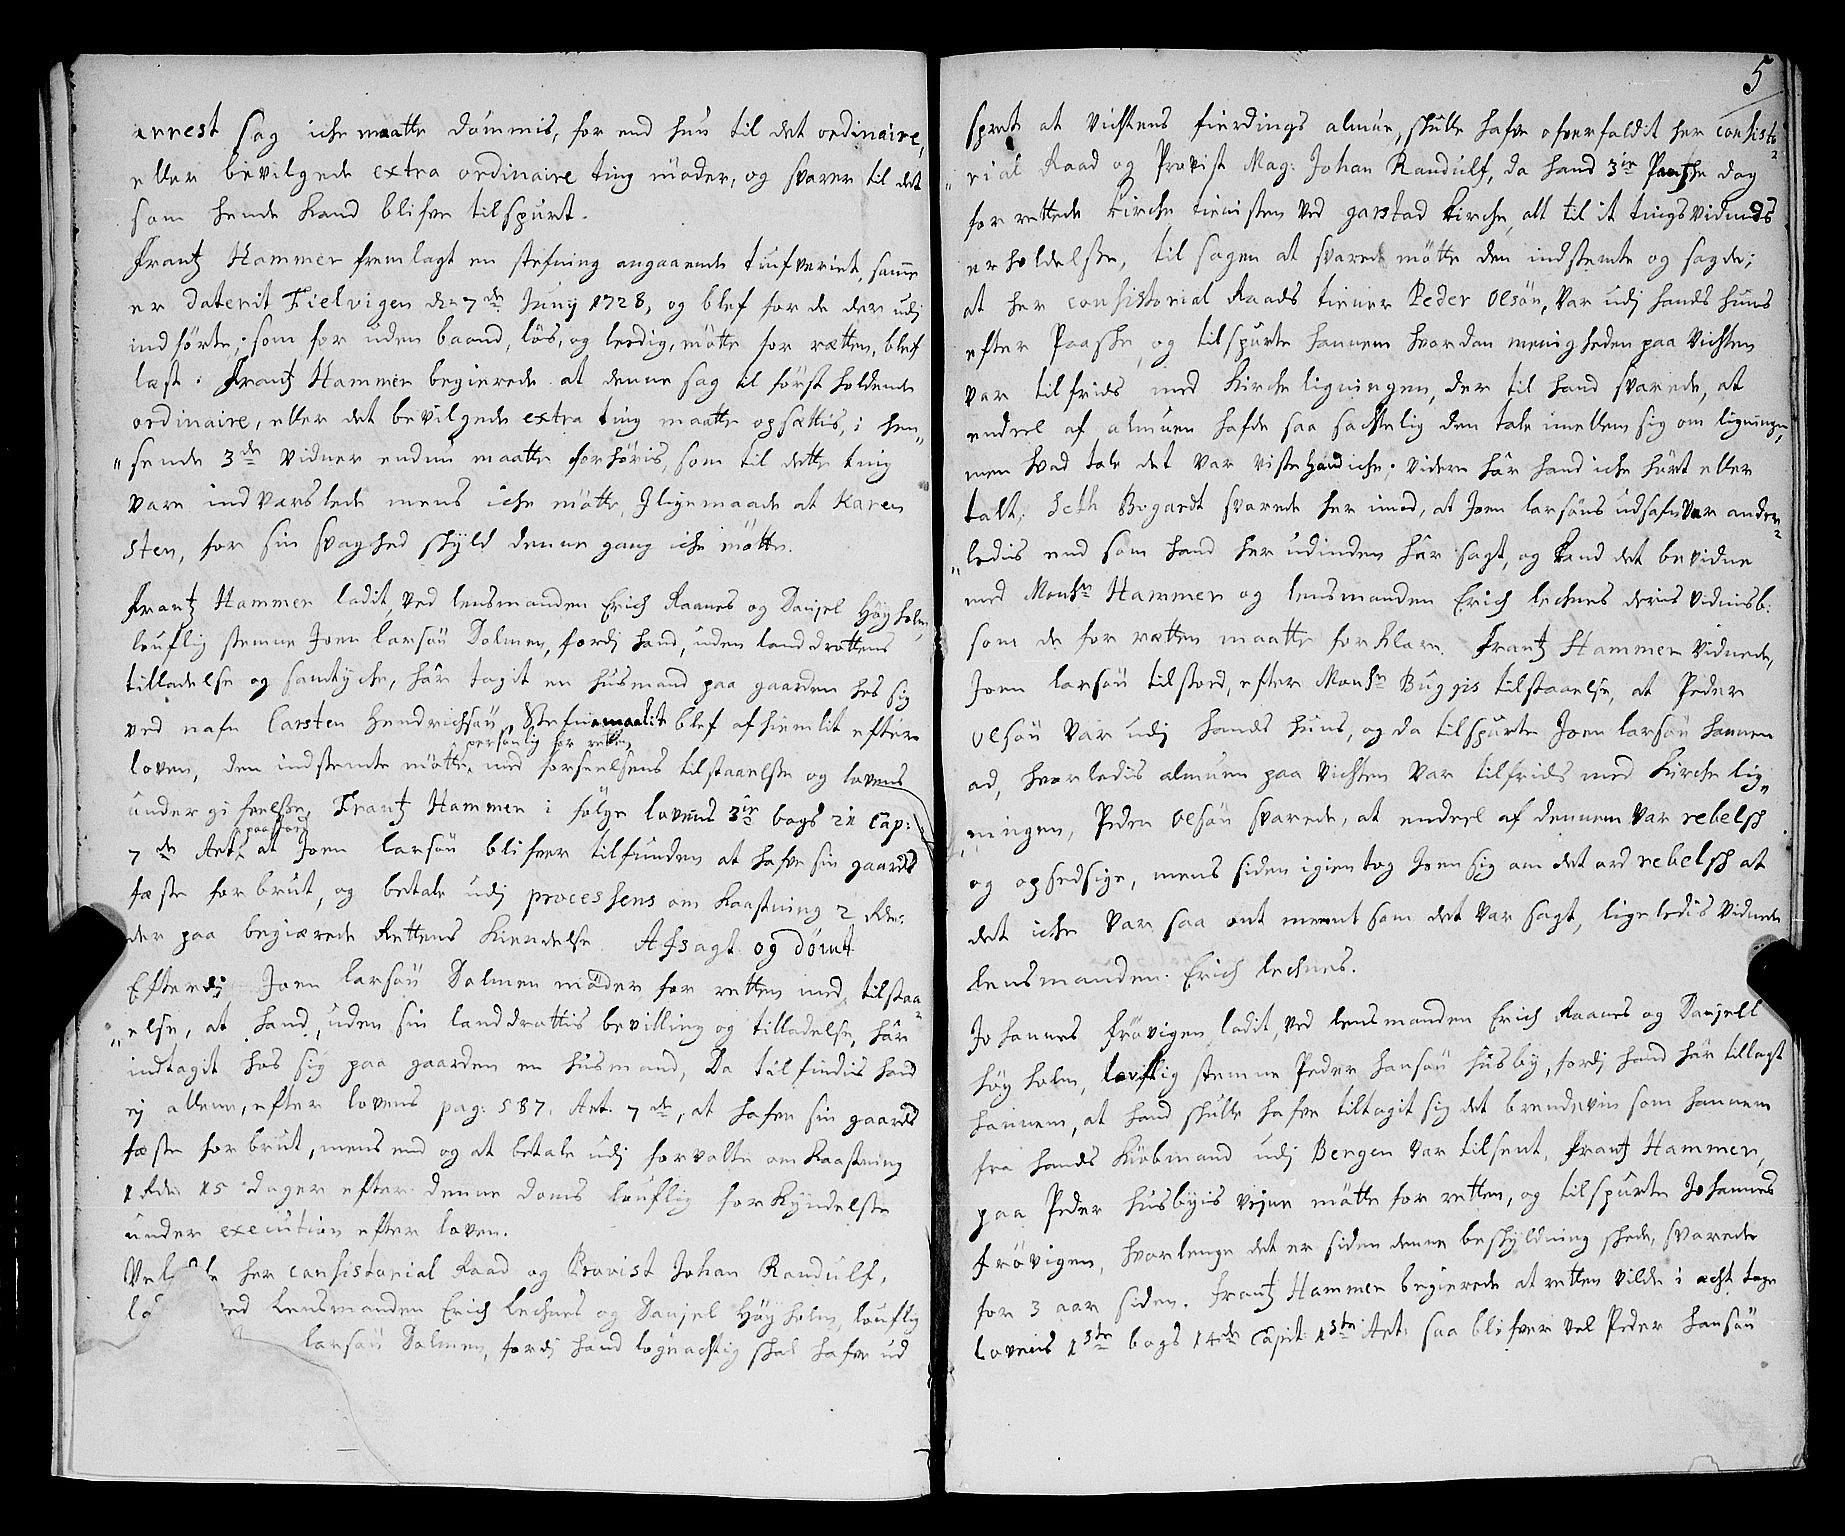 arrest sag iche maatte dømmis, for end hun til det ordinaire,
eller bevilgede extra ordinaire ting møder, og svarer til det
som hende kand blifve tilspurt.
Frantz Hammer fremlagt en stefning angaaende tiufveriet, samme
er daterit Tielvigen d: 7de Junÿ 1728, og blef for de der udj
indførte, som for uden baand, løs, og ledig, møtte for rætten, blef
læst. Frantz Hammer begierede at denne sag til først holdende
ordinaire, eller det bevilgede extra ting maatte opsættis, i hen„
„seende 3de vidner endnu maatte forhøris, som til dette ting
vare indvarslede mens iche møtte, Jligemaade at Karen
Sten, for sin svaghed skÿld denne gang iche møtte.
Frantz Hammer ladit, ved lensmanden Erich Raanes og Danjel Høÿholm,
louflig stemne Joen larsøn Dolmen, fordj hand, uden landdrottens
tilladelse og samtÿche, hår tagit en husmand paa gaarden hos sig
ved nafn Carsten Hendrichsøn, Stefnemaalit blef afhiemlit efter
personlig for retten,
loven, den indstemte møtte, med forseelsens tilstaaelsse og lovens
undergifvelsse, Frantz Hammer i følge lovens 3ie bogs 21 Cap:
paastod
7de Art: at Joen larsøn blifver tilfunden at hafve sin gaards
fæste forbrut, og betale udj processens omkaastning 2 Rdr:
der paa begiærede Rettens Kiendelse. Afsagt og dømt
Efterdj Joen larsøn Dolmen møder for retten med tilstaa
„else, at hand, uden sin landdrottis bevilling og tilladelse, hår
indtagit hos sig paa gaarden en husmand, Da tilfindis hand
ej allene, efter lovens pag: 587. Art. 7de, at hafve sin gaards
fæste forbrut, mens end og at betale udj forvolte omkaastning
1 Rdr 15 dager efter denne doms louflig forkÿndelsse
under execution efter loven.
her consistorial Raad og Provist Johan Randulf,
ved Lensmanden Erich Lechnes og Danjel Høÿholm, louflig
larsøn Dolmen, fordj hand løgnachtig skal hafve ud
5
spredt at vichtens fierdings almue, skulle hafve ofverfaldit her consisto
„rial Raad og Provist Mag: Johan Randulf, da hand 3ie Paasche dag
forrettede Kirche tienisten ved garstad Kirche, alt til it tingsvidnes
erholdelsse, til sagen at svare møtte den indstemte og sagde;
at her consistorial Raads tiener Peder Olsøn, var udj hands huus
efter Paasche, og tilspurte hannem hvordan menigheden paa vichten
var tilfrids med Kircheligningen, der til hand svarede, at
endeel af almuen hafde saa sachtelig den tale imellem sig om ligningen,
men hvad tale det var viste hand iche; videre hår hand iche hørt eller
talt; Seth Bogardt svarede her imod, at Joen larsøns udsafn var ander
„ledis end som hand her udinden hår sagt, og Kand det bevidne
med Monsr Hammer og lensmanden Erich lechnes deris vidnisb:
som de for rætten maatte forklare. Frantz Hammer vidnede,
Joen larsøn tilstoed, efter Monsr Buggis tilstaaelse, at Peder
Olsøn var udj hands huus, og da tilspurte Joen larsøn hannem
ad, hvorledis almuen paa vichten var tilfrids med Kirchelig„
„ningen, Peder Olsøn svarede, at endeel af dennem var rebelsch
og opsedsige, mens siden igientog Joen sig om det ord rebelsch at
det iche var saa ont meent som det var sagt, ligeledis vidnede
lensmanden Erich lechnes.
Johannes Frøvigen ladit, ved lensmanden Erich Raanes og Danjell
høÿholm, louflig stemne Peder hansøn husbÿ, fordj hand hår tillagt
hannem, at hand skulle hafve tiltagit sig det brendevin som hannem
fra hands Kiøbmand udj Bergen var tilsent, Frantz Hammer,
paa Peder husbÿis vegne møtte for retten, og tilspurte Johannes
Frøvigen, hvorlenge det er siden denne beskÿldning skede, svarede
for 3 aar siden. Frantz Hammer begierede at retten vilde i acht tage
lovens 1ste bogs 14de Capit: 1ste Art: saa blifver vel Peder hansøn